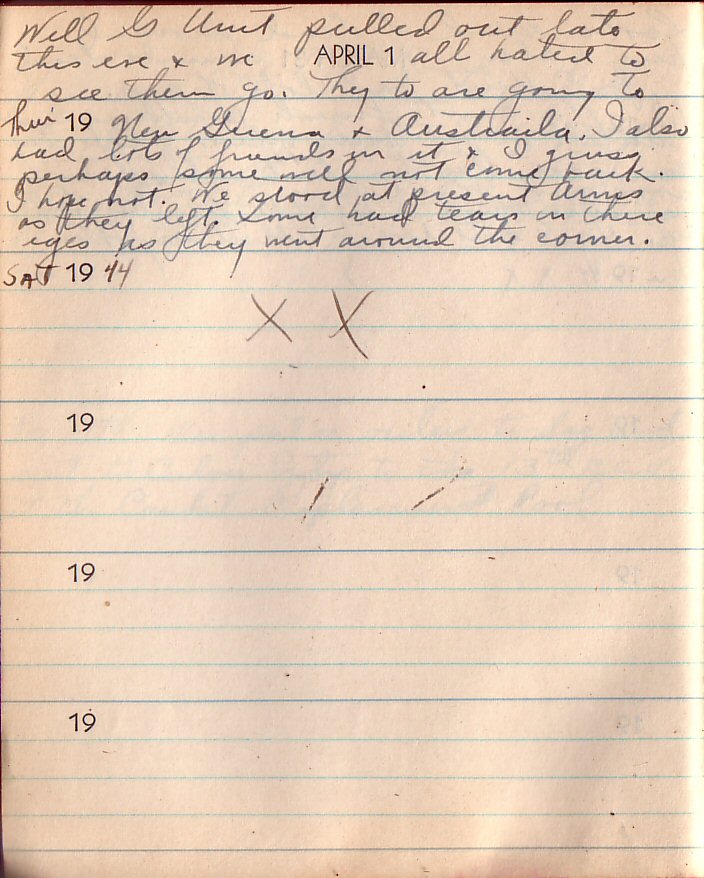 Well G Unit pulled out late
this eve & we APRIL 1 all hated to
see them go. They to are going to
Thur 19 New Guiena & Austraila. I also
had lots of friends in it & I guess
perhaps some will not come back.
I hope not. We stood at present arms
as they left. Some had tears in there
eyes as they went around the corner.
SAT 19 44
X X
19
19
19